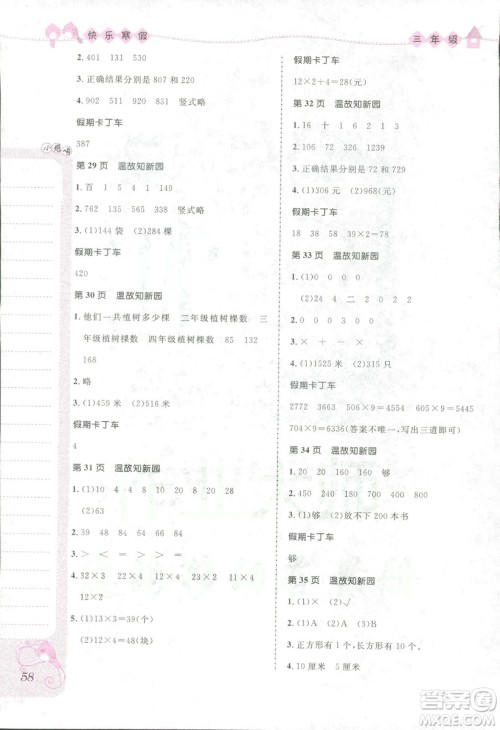 快乐寒假
三年级
2. 401
3. 正确结果分别是 807 和 720
4. 902 520 911 竖式略
假期卡丁车
387
第 29 页 温故知新园
1. 百 1 5 4 1 149
2. 762 135 565 竖式略
3. (1)144 袋 (2)284 棵
假期卡丁车
420
第 30 页 温故知新园
1. 他们一共植树多少棵 二年级植树棵数 三
年级植树棵数 四年级植树棵数 85 132
168
2. 略
3. (1)459 米 (2)516 米
假期卡丁车
略
第 31 页 温故知新园
1. (1)10 4 4 (2)8 8 16
2. 39 64 84 23 48 22
3. > < = > > <
4. 32×3 22×4 12×4
5. (1)30×3=90(个)
(2)12×4=48(块)
58
假期卡丁车
12×2+4=28(元)
第 32 页 温故知新园
1. 16 10 1 6 10 16
2. 106 378 455
3. 正确结果分别是 72 和 729
4. (1)306(元) (2)968(元)
假期卡丁车
18 38 58 39×2=78
第 33 页 温故知新园
1. (1)0 0 0 0
(2)24 0 2 2 2024
2. 0 0 0 0
3. × + - ×
4. (1)1530 米 (2)2142 米
5. 够
假期卡丁车
2772 3663 506×9=4554 605×9=5445
704×9=6336(答案不唯一,写出三道即可)
第 34 页 温故知新园
1. 20 20 160 160
2. 450 400 350 280
3. (1)够 (2)放不下 200 本书
假期卡丁车
够
第 35 页 温故知新园
1. (1)× (2)√
2. (1)A (2)A
3. 正方形有 1 个,长方形有 2 个。
4. 10 厘米 10 厘米